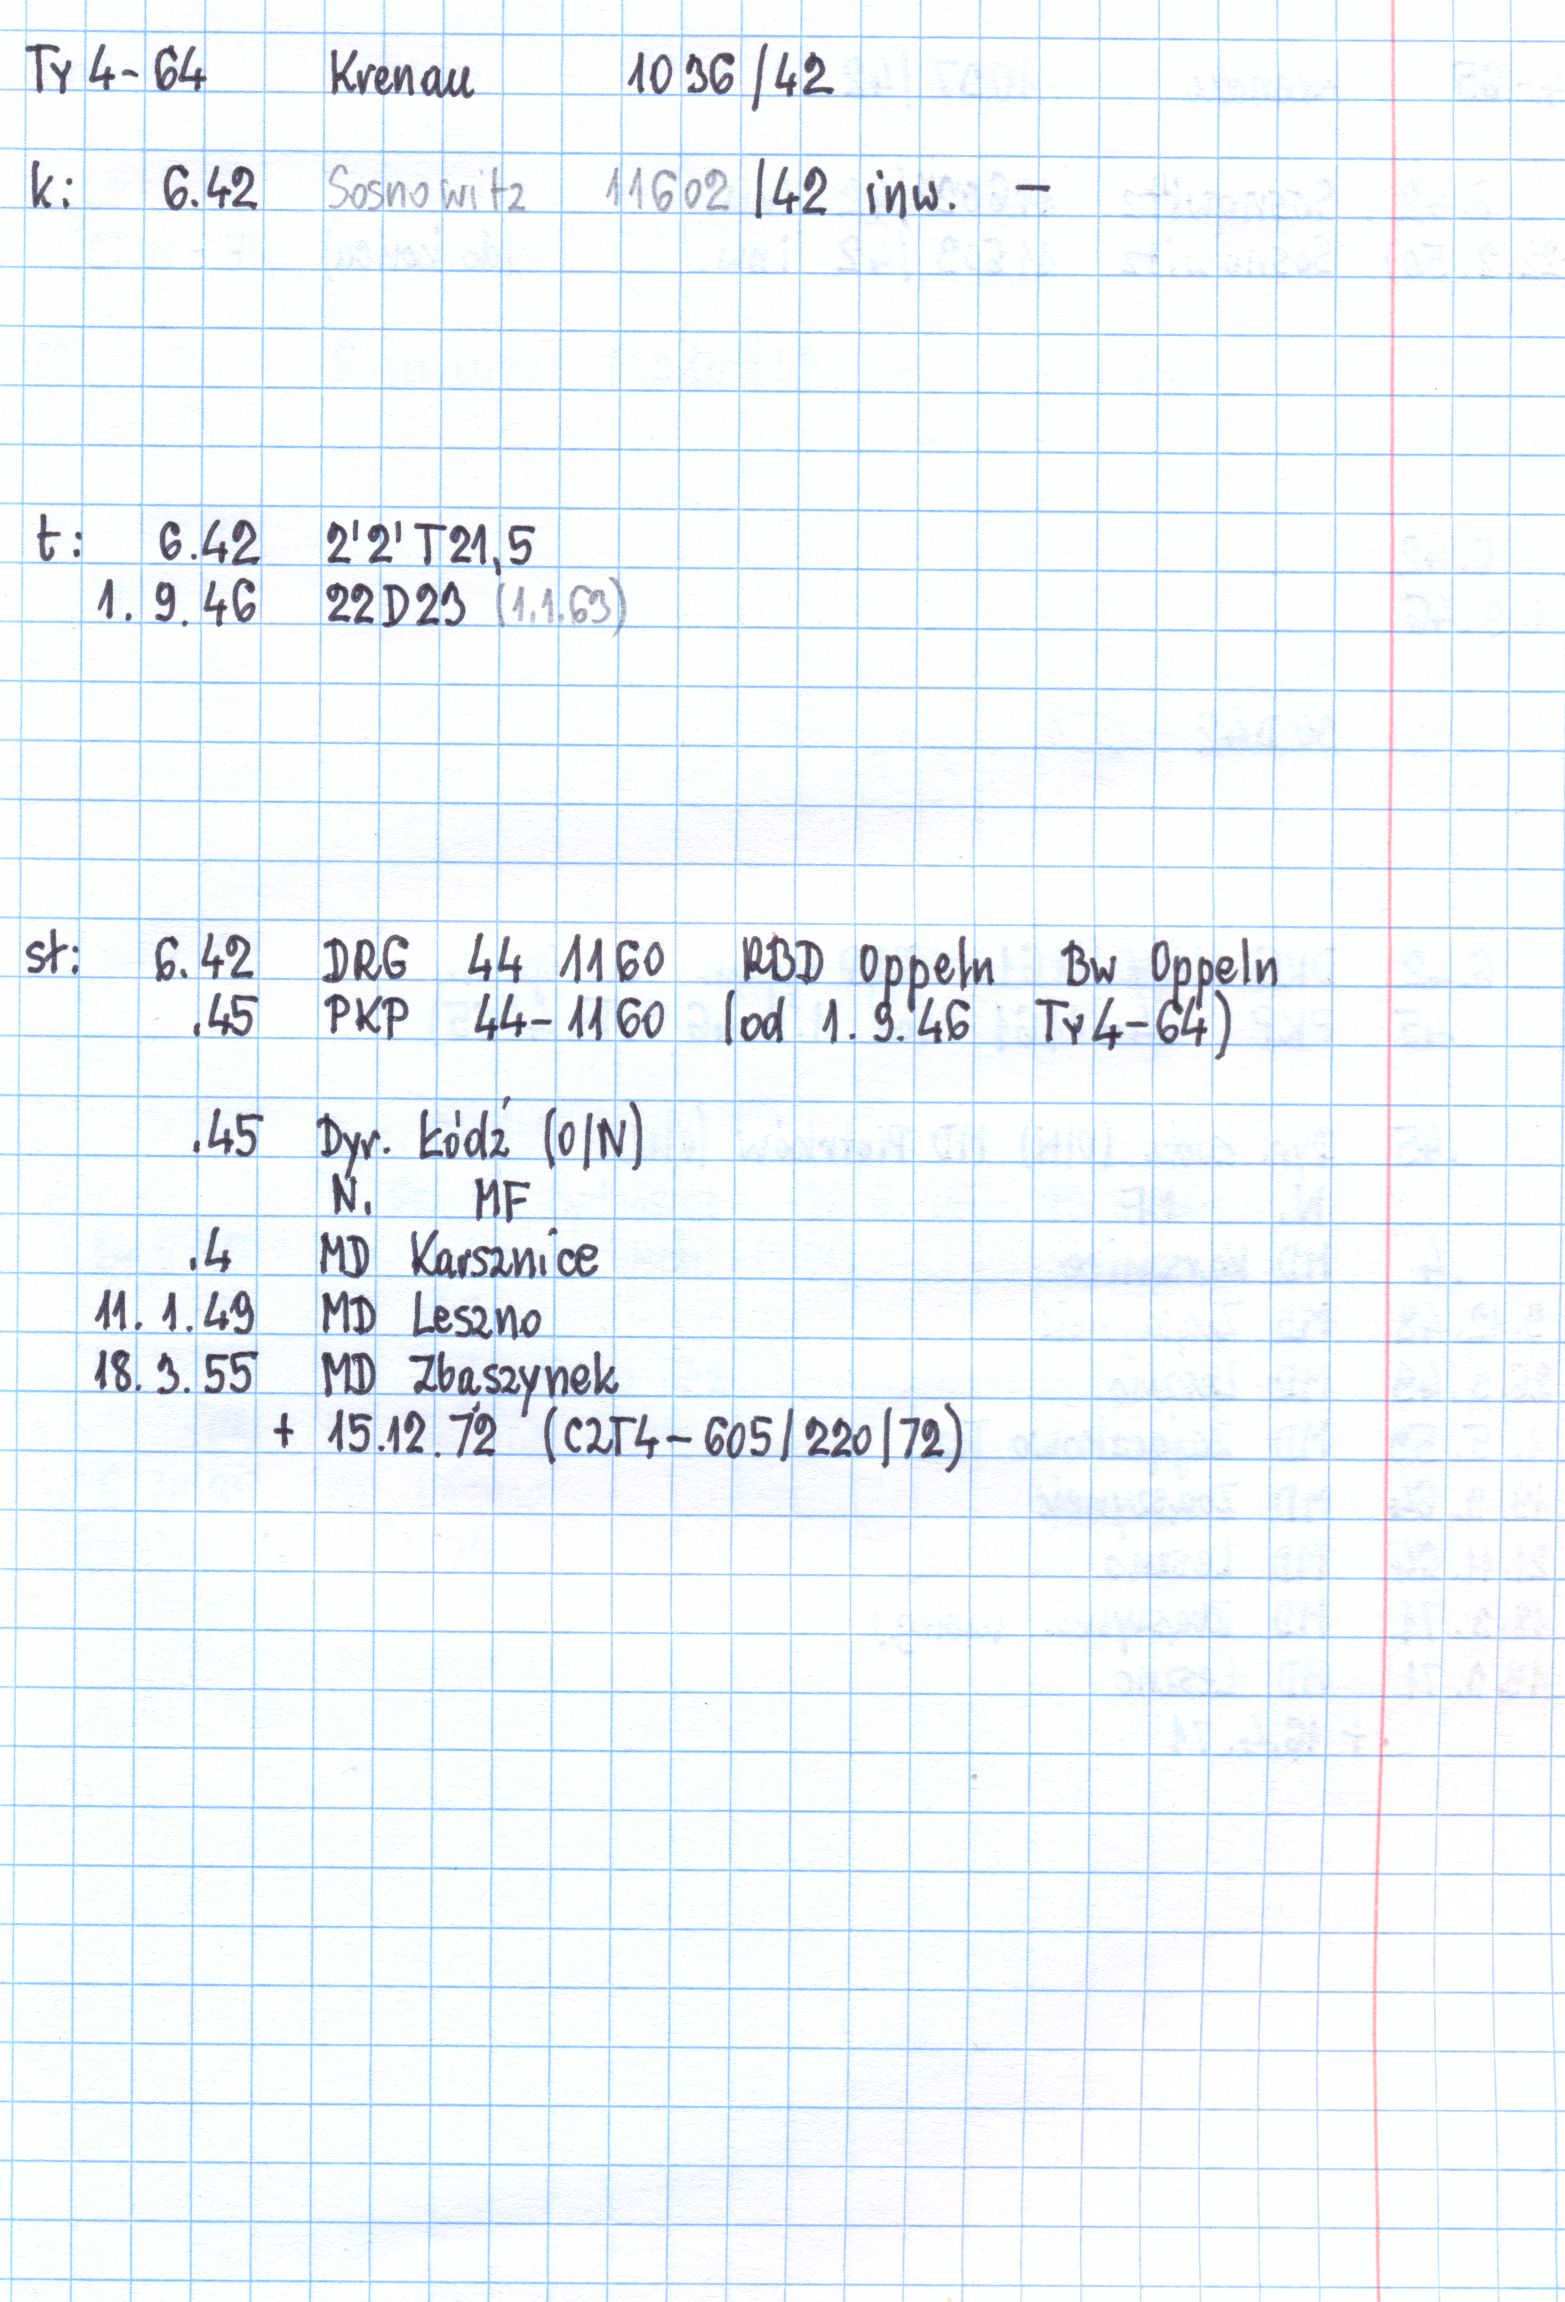 Ty 4-64 Krenau 1036/42
k: 6.42 Sosnowitz 11602/42 inw. –
t: 6.42 2'2'T21,5
1. 9. 46 22D23 (1.1.63)
st: 6.42 DRG 44 1160 RBD Oppeln Bw Oppeln
.45 PKP 44-1160 (od 1. 9. 46 Ty4-64)
.45 Dyr. Łódź (O/N)
N. MF
.4 MD Karsznice
11. 1. 49 MD Leszno
18. 3. 55 MD Zbąszynek
+ 15.12.72 (C2T4-605/220/72)